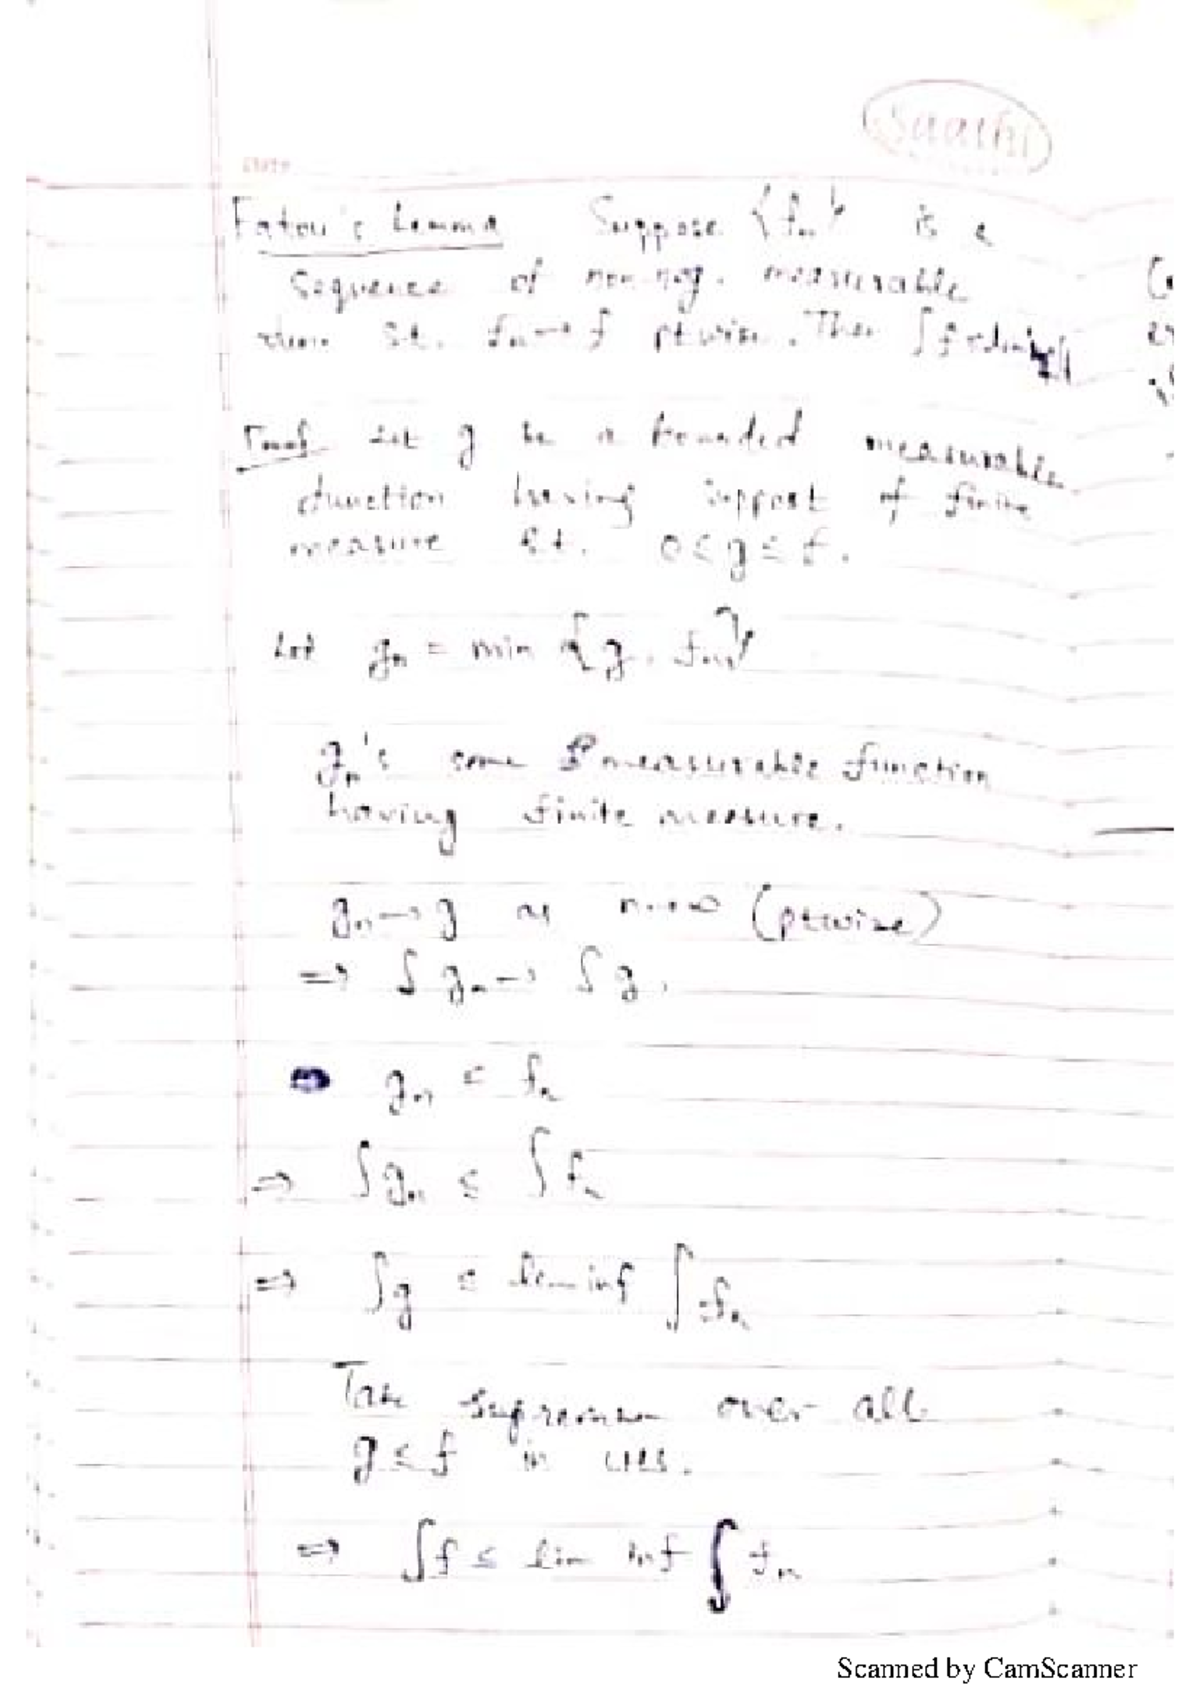 Saathi
Fatou's Lemma Suppose {fn} is a
sequence of non-neg. measurable
st. fn → f ptwise. Then ∫f ≤ liminf
Proof Let g be a bounded measurable
function having support of finite
measure st. 0 ≤ g ≤ f.
Let gn = min {g, fn}
gn's some measurable function
having finite measure.
gn → g as n → ∞ (ptwise)
⇒ ∫ gn → ∫ g.
gn ≤ fn
⇒ ∫ gn ≤ ∫ fn
⇒ ∫ g ≤ lim inf ∫ fn
Take supremum over all
g ≤ f in LHS.
⇒ ∫ f ≤ lim inf ∫ fn
Scanned by CamScanner